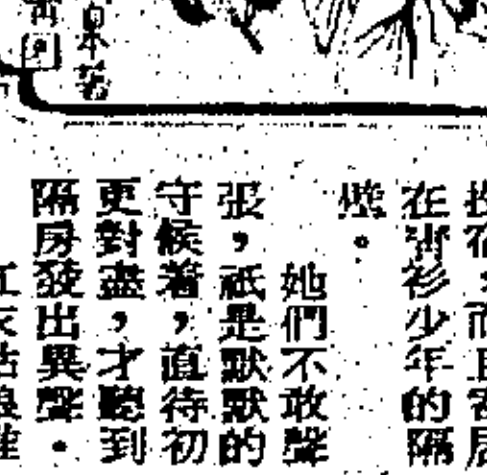 投宿，而且客居
在青衫少年的隔
壁。
她們不敢聲
張，祇是默默的
守候着，直待初
更對盡，才聽到
隔房發出異聲。
紅衣姑娘